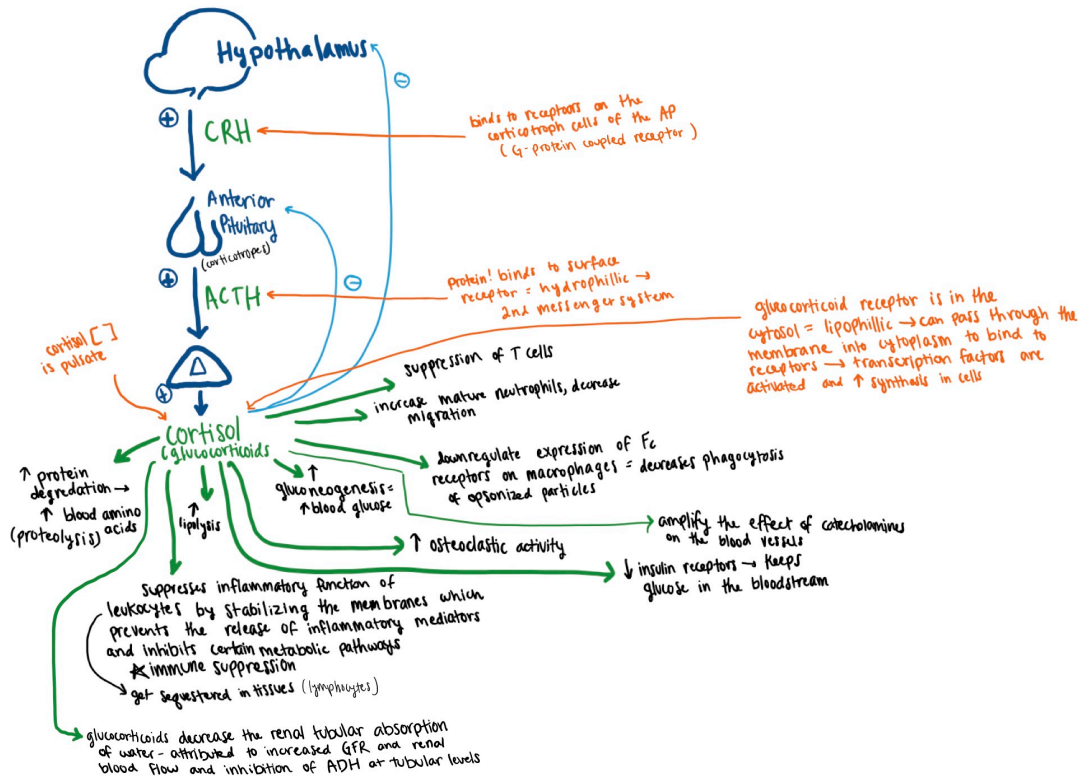 Hypothalamus
⊖
⊕
CRH
binds to receptoors on the
corticotroph cells of the AP
(G-protein coupled receptor)
Anterior
Pituitary
(corticotropes)
⊖
⊕
ACTH
protein! binds to surface
receptor = hydrophillic →
2nd messenger system
glucocorticoid receptor is in the
cytosol = lipophillic → can pass through the
membrane into cytoplasm to bind to
receptors → transcription factors are
activated and ↑ synthesis in cells
cortisol [ ]
is pulsate
⊕
suppression of T cells
increase mature neutrophils, decrease
migration
cortisol
(glucocorticoids
downregulate expression of Fc
receptors on macrophages = decreases phagocytosis
of opsonized particles
↑ protein
degredation →
↑ blood amino
(proteolysis) acids
↑
lipolysis
↑
gluconeogenesis =
↑ blood glucose
amplify the effect of catecholamines
on the blood vessels
↑ osteoclastic activity
↓ insulin receptors → keeps
glucose in the bloodstream
suppresses inflammatory function of
leukocytes by stabilizing the membranes which
prevents the release of inflammatory mediators
and inhibits certain metabolic pathways
★ immune suppression
get sequestered in tissues (lymphocytes)
glucocorticoids decrease the renal tubular absorption
of water - attributed to increased GFR and renal
blood flow and inhibition of ADH at tubular levels